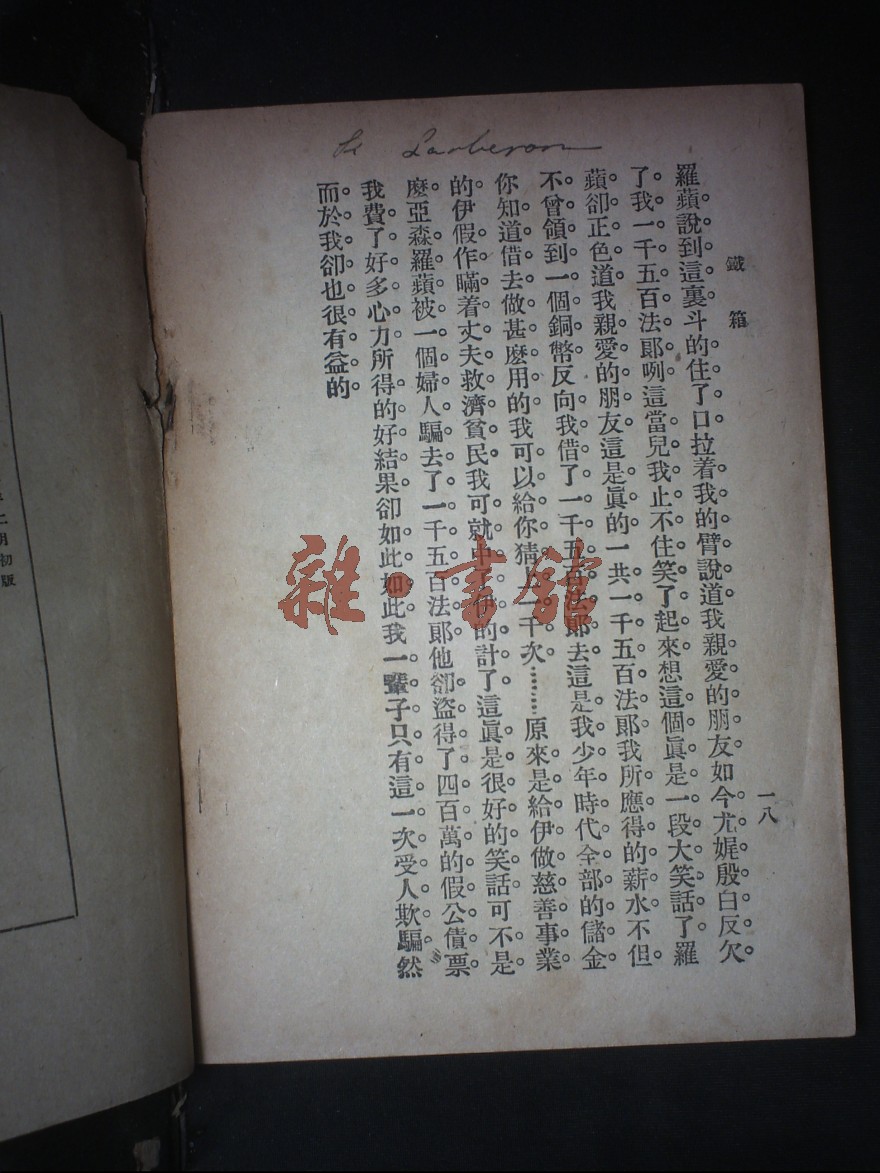 鐵箱
一八
羅蘋說到這裏斗的住了口拉着我的臂說道我親愛的朋友如今尤娓殷白反欠
了我一千五百法郎咧這當兒我止不住笑了起來想這個眞是一段大笑話了羅
蘋卻正色道我親愛的朋友這是眞的一共一千五百法郎我所應得的薪水不但
不曾領到一個銅幣反向我借了一千五百法郎去這是我少年時代全部的儲金
你知道借去做甚麽用的我可以給你猜上一千次……原來是給伊做慈善事業
的伊假作瞞着丈夫救濟貧民我可就中了伊的計了這眞是很好的笑話可不是
麽亞森羅蘋被一個婦人騙去了一千五百法郎他卻盜得了四百萬的假公債票
我費了好多心力所得的好結果卻如此如此我一輩子只有這一次受人欺騙然
而於我卻也很有益的
初版
雜·書館